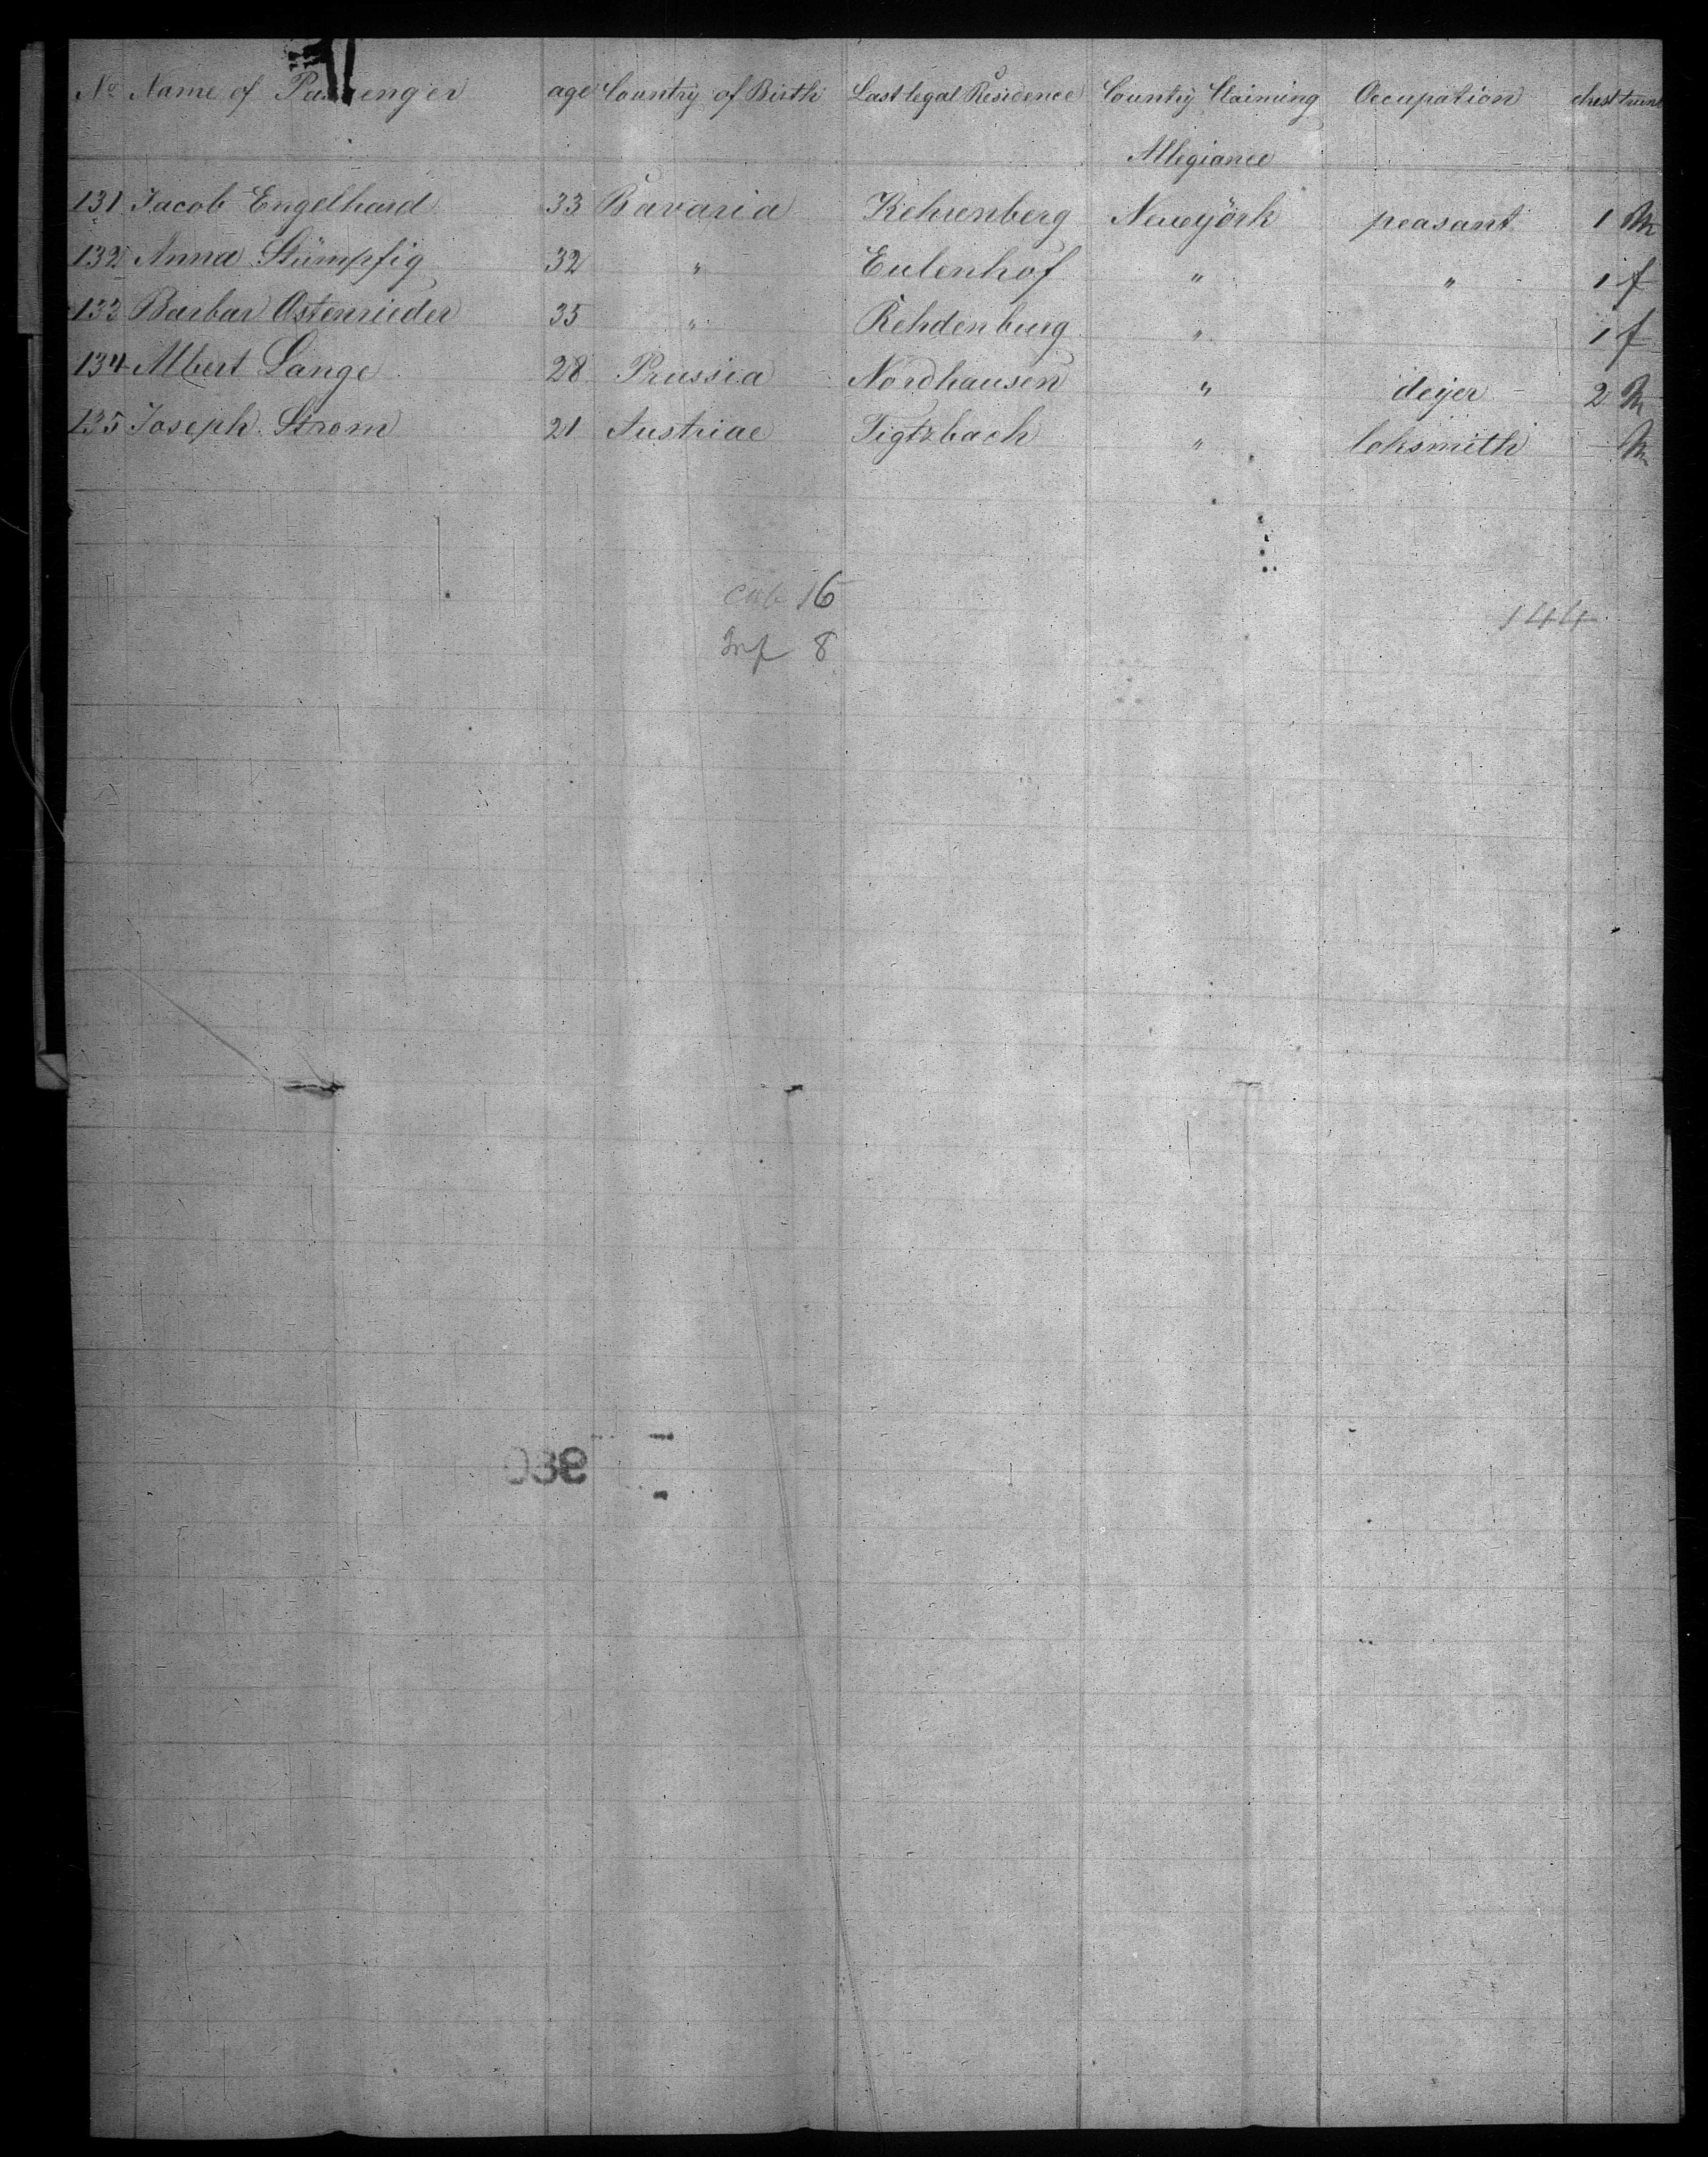 No Name of Passenger age Country of Birth Last legal Residence Country Claiming Occupation chest trunk
Allegiance
131 Jacob Engelhard 33 Bavaria Kehrenberg Neuyörk peasant 1 M
132 Anna Stümpfig 32 " Eulenhof " " 1 f
133 Barbar Ostenrieder 35 " Rehdenburg " 1 f
134 Albert Lange 28 Prussia Nordhausen " deyer 2 M
135 Joseph Strom 21 Austriae Tigtzbach " loksmith M
16
144
Inf 8